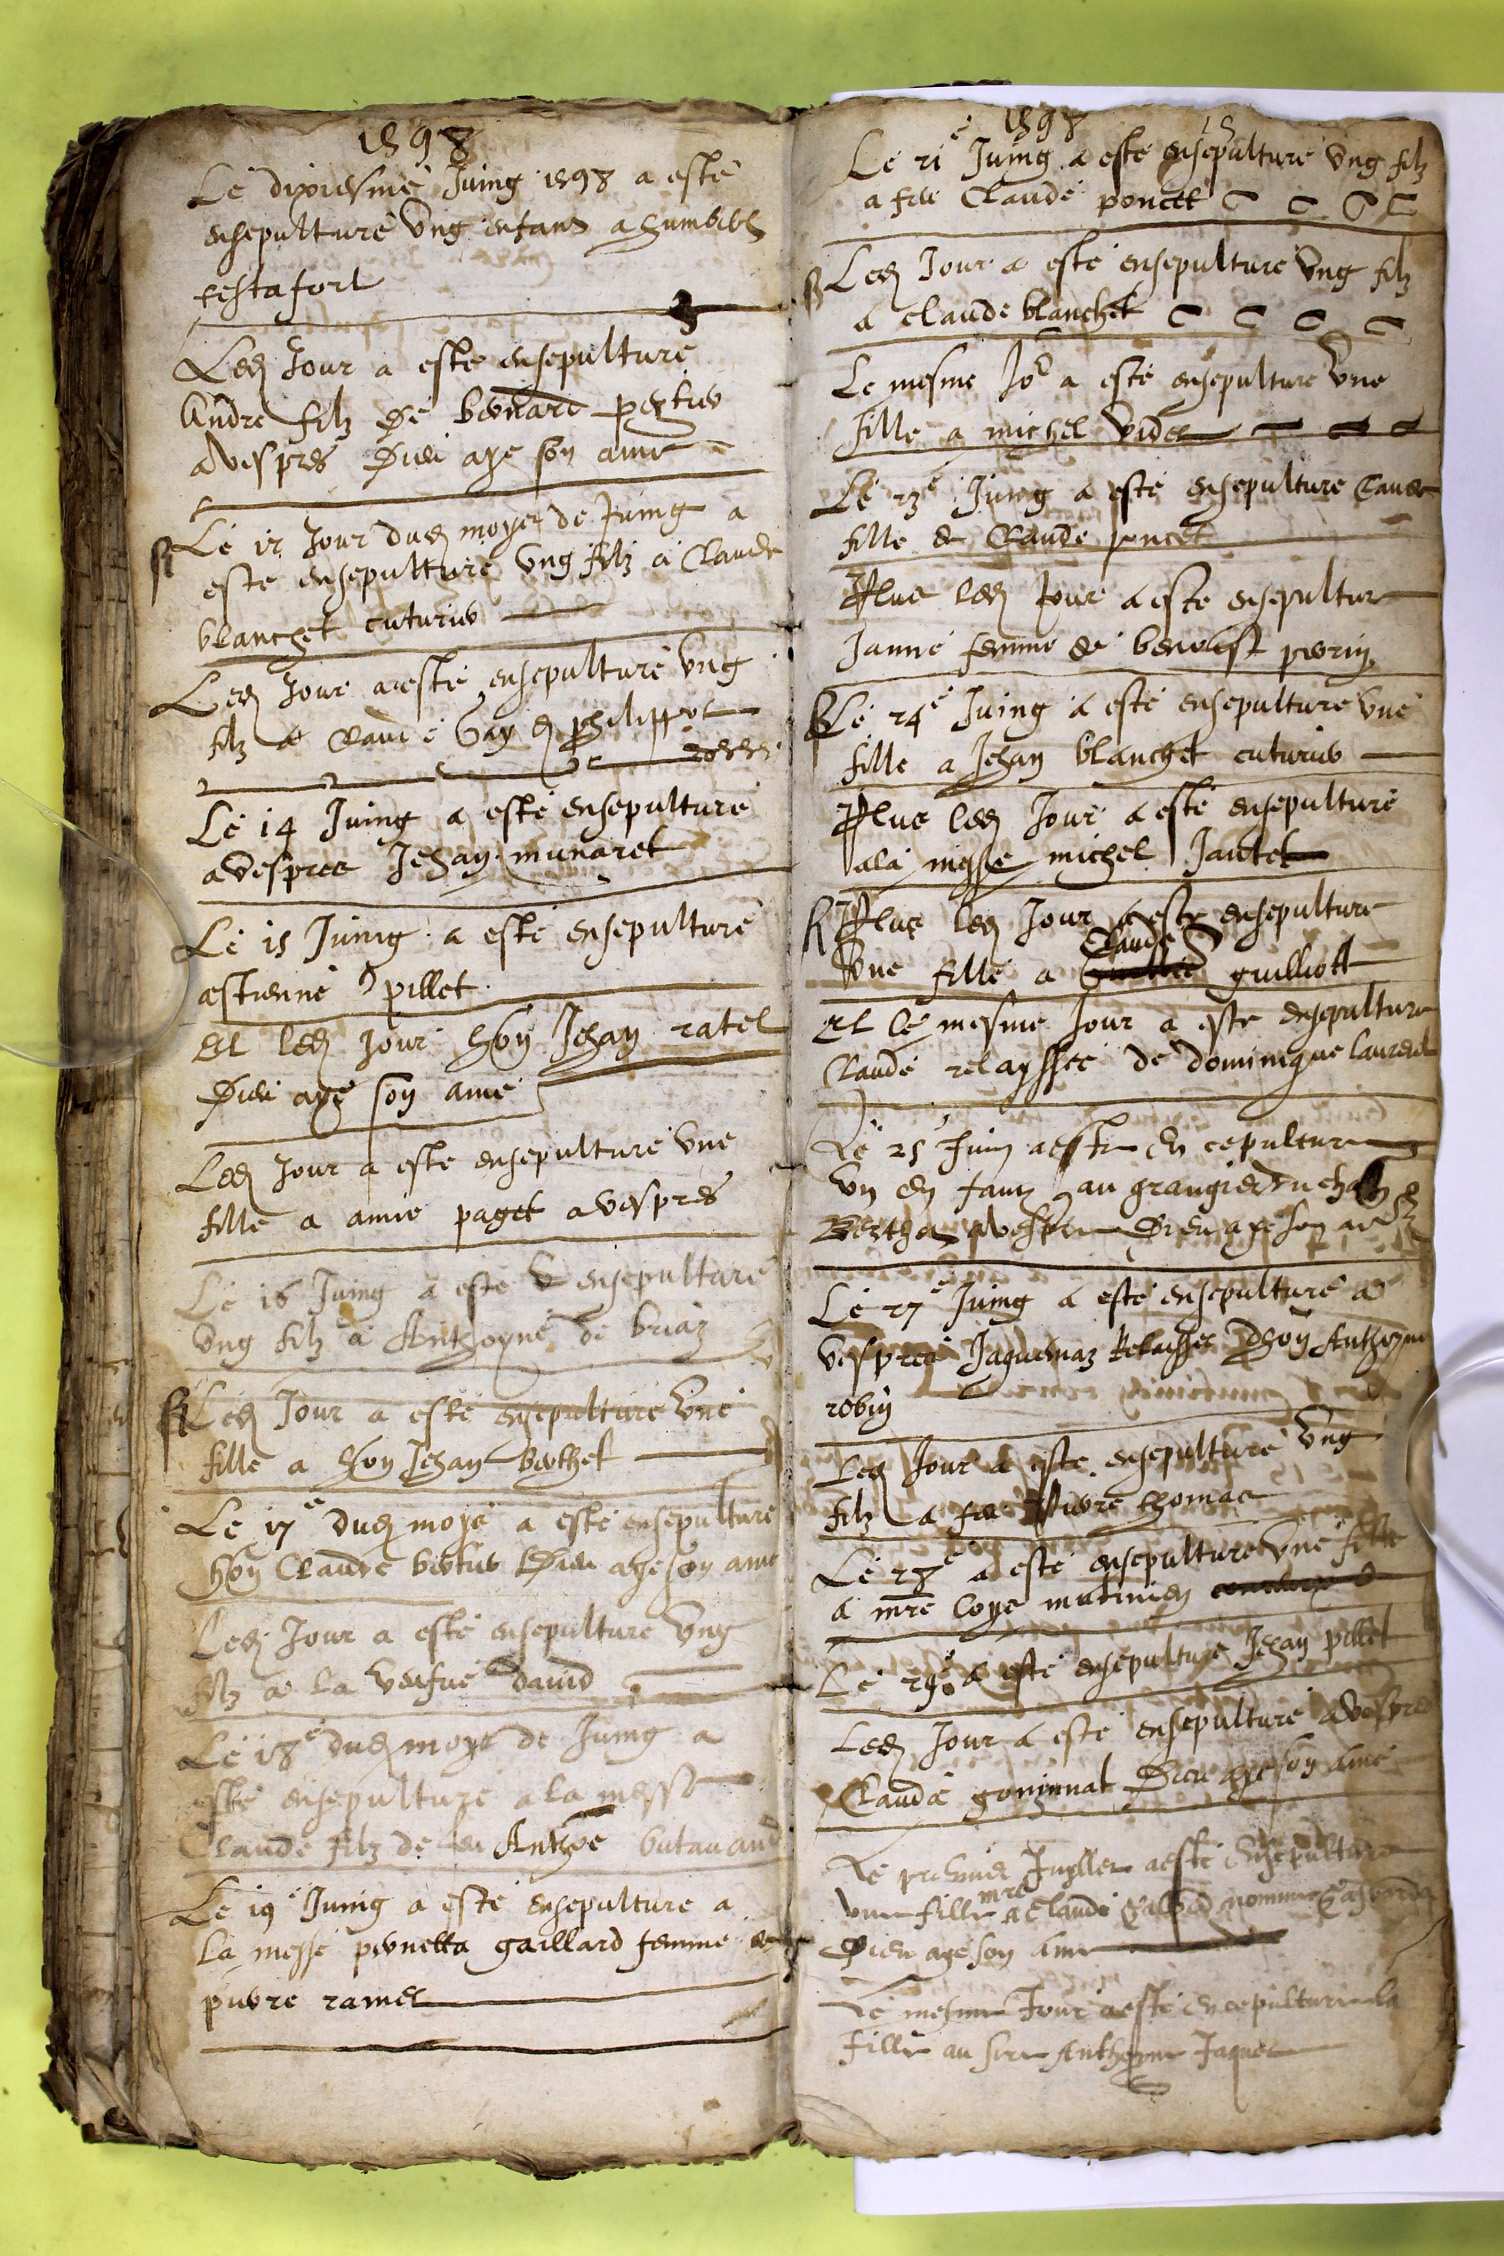 1598
Le dixiesme Juing 1598 a esté
ensepulturé ung enfans a humbert
testafort
Led Jour a esté ensepulturé
André filz de bernard
a vespres Dieu aye son ame
Le 12 Jour dud moys de Juing a
esté ensepulturé ung filz a Claude
blanchet cuturier
Led Jour a esté ensepulturé ung
filz a Claude Gay d philippot
Le 14 Juing a esté ensepulturé
a vespres Jehan munaret
Le 15 Juing a esté ensepulturé
estienne pillet
Et led Jour hon Jehan ratel
Dieu aye son ame
Led Jour a esté ensepulturé une
fille a amie paget a vespres
Le 16 Juing a esté ensepulturé
ung filz a Anthoyne de briaz
Led Jour a esté ensepulturé une
fille a hon Jehan berthet
Le 17e dud moys a esté ensepulturé
hon Claude bertier Dieu aye son ame
Led Jour a esté ensepulturé ung
filz a la vesfue dauid
Le 18e dud moys de Juing a
esté ensepulturé a la messe
Claude filz de feu Anthoe
Le 19e Juing a esté ensepulturé a
la messe pernetta gaillard femme de
pierre ramel
1598
Le 21e Juing a esté ensepulturé ung filz
a feu Claude poncet
Led Jour a esté ensepulturé ung filz
a claude blanchet
Le mesme Jor a esté ensepulturé une
fille a michel
Le 23e Juing a esté ensepulturé Claude
fille de Claude poncet
Plus led Jour a esté ensepulturé
Janne femme de benoist perrin
Le 24e Juing a esté ensepulturé une
fille a Jehan blanchet cuturier
Plus led Jour a esté ensepulturé
a la messe michel Jantet
Plus led Jour a esté ensepulturé
Claude
une fille a guilliott
Et le mesme Jour a esté ensepulturé
Claude relayssee de dominique laurent
Le 25 Juin a esté en cepulturé
un en fantz au grangier du
Bertha a vespre Dieu aye son ame
Le 27e Juing a esté ensepulturé a
vespres Jaquemaz Relaissee dhon Anthoyne
robin
Led Jour a esté ensepulturé ung
filz a feu Pierre thomas
Le 28e a esté ensepulturé une fille
a mre loys
Le 29e a esté ensepulturé Jehan pillet
Led Jour a esté ensepulturé a vespres
Claude Dieu aye son ame
Le premier Jugllet a esté ensepulturé
mre
une fille a Claude nommée
Dieu aye son ame
Le mesme Jour a esté encepulturé la
fille au sire Anthoyne Jaquet